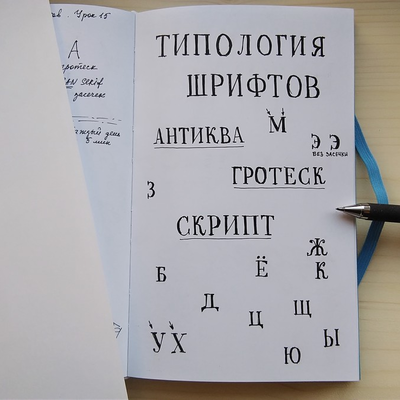 Урок 15
А
гротеск
засечек
каждый день
5 мин
ТИПОЛОГИЯ
ШРИФТОВ
М
АНТИКВА
Э Э
БЕЗ ЗАСЕЧКИ
ГРОТЕСК
З
СКРИПТ
Ж
Б Ё К
Д Ц Щ
У Х Ю Ы